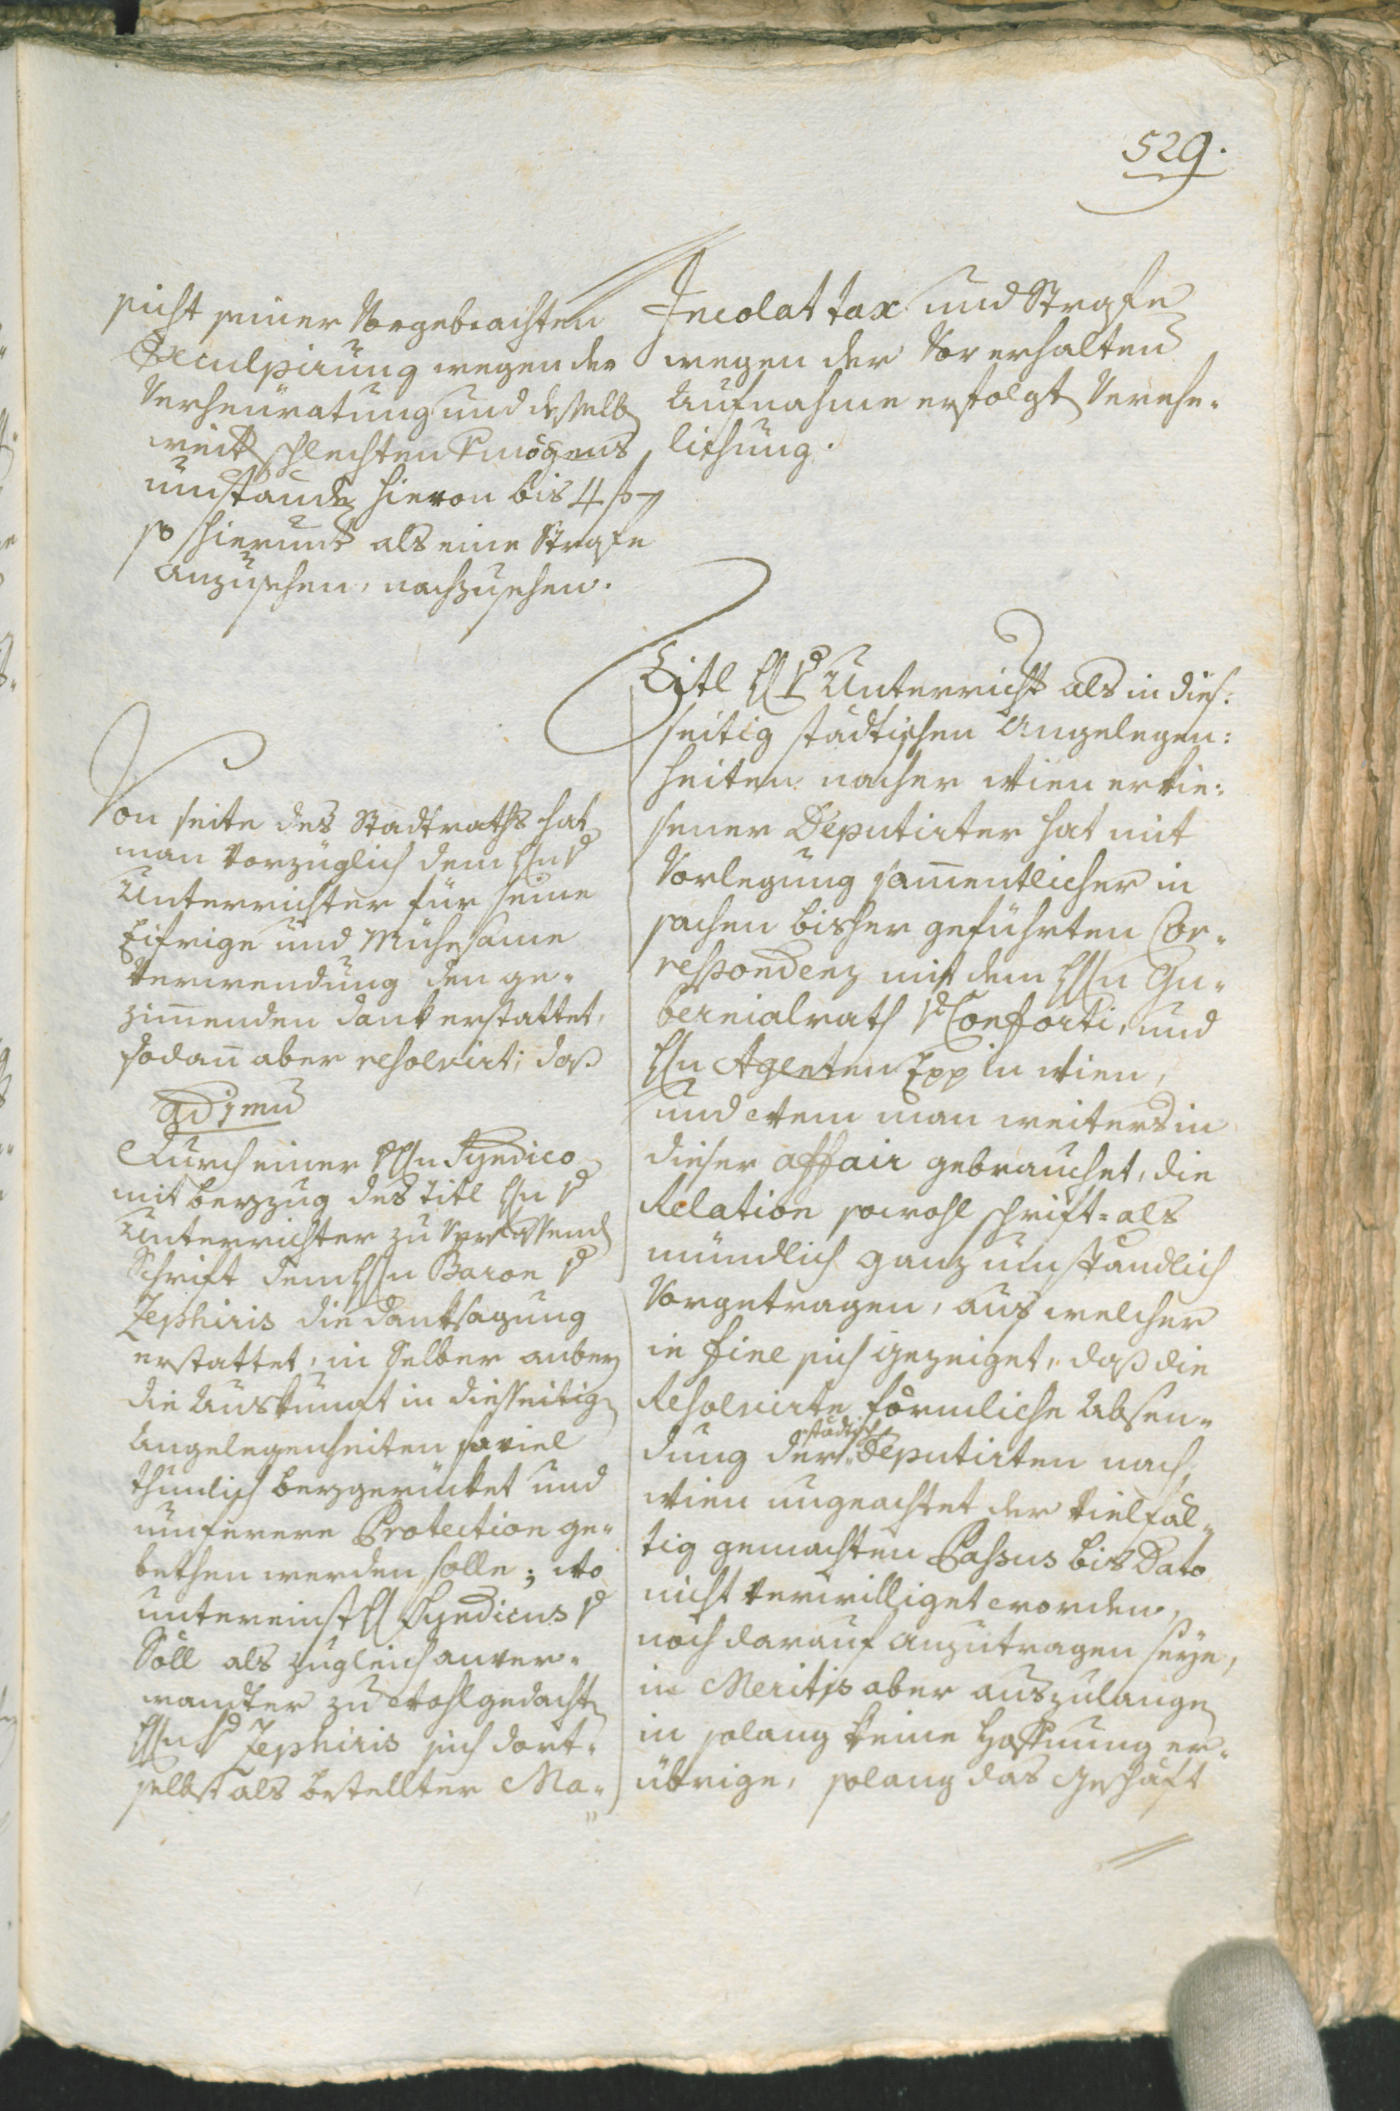 529.
sicht seiner Vorgebrachten
Exculpirung wegen der
Verheüratung und desselb
weith schlechten Vermögens
umständ hievon bis 4 f
so hierund als eine Strafe
anzusehen, nachzusehen.
Von seite des Stadtraths hat
man vorzüglich dem Hn v
Unterrichter für seine
Eifrige und Mühesame
Verwendung den ge-
zimenden dank erstattet,
sodan aber resolvirt; daß
ad 1mu
Durch einer Hn Syndico
mit beyzug des titl Hn v
Unterrichter zu Verfassend
Schrift dem Hn Baron v
Zephiris die danksagung
erstattet, in Selber anbey
die Auskunft in diesseitig
Angelegenheiten soviel
thunlich beygerücket und
umferere Protection ge-
bethen werden solle; wo
untereinst H Syndicus v
Söll als zugleich anver-
wandter zu wohlgedacht
Hn v Zephiris sich dort-
selbst als bestellter Ma-
Incolat tax und Strafe
wegen der Vor erhalten
Aufnahme erfolgt Verehe-
lichung.
Titl H v Unterricht als in dies-
seitig städtischen Angelegen-
heiten nacher Wien erkie-
sener Deputirter hat mit
Vorlegung samentlicher in
sachen bisher geführten Cor-
respondenz mit dem Hn Gu-
bernialrath v Conforti, und
Hn Agenten Epp in Wien,
und Wem man weiters in
dieser affair gebrauchet, die
Relation sowohl schrift- als
mündlich ganz umständlich
Vorgetragen, aus welcher
in fine sich gezeiget, daß die
Resolvirte förmliche Absen-
dung der städtisch Deputirten nach
Wien ungeachtet der Vielfäl-
tig gemachten Passus bis Dato
nicht verwilliget worden,
noch darauf anzutragen seye,
in Meritis aber auszulangen
in solang keine Hoffnung er-
übrige, solang das geschäft